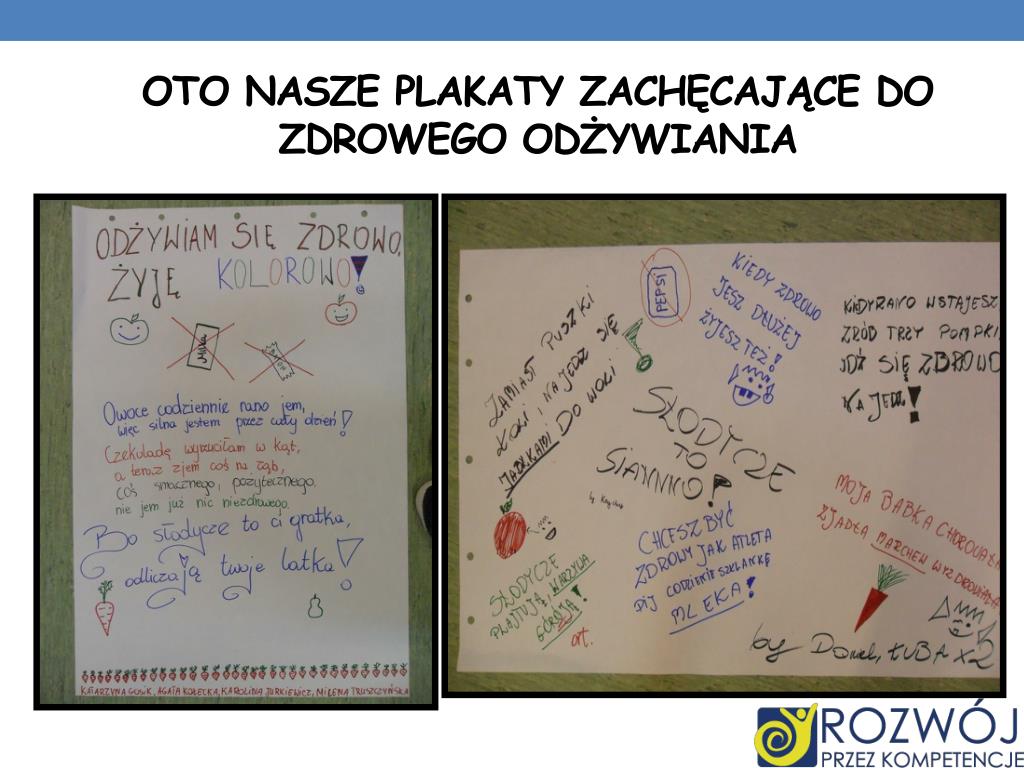 OTO NASZE PLAKATY ZACHĘCAJĄCE DO
ZDROWEGO ODŻYWIANIA
ODŻYWIAM SIĘ ZDROWO,
ŻYJĘ KOLOROWO!
Milka
BATON
Owoce codziennie rano jem,
więc silna jestem przez cały dzień!
Czekoladę wyrzuciłam w kąt,
a teraz zjem coś na ząb,
coś smacznego, pożytecznego.
nie jem już nic niezdrowego.
Bo słodycze to ci gratka,
odliczają twoje latka!
KATARZYNA GOSIK, AGATA KOŁECKA, KAROLINA JURKIEWICZ, MILENA TRUSZCZYŃSKA
ZAMIAST PUSZKI
KOKI NAJEDZ SIĘ
DO WOLI
PEPSI
KIEDY ZDROWO
JESZ DŁUŻEJ
ŻYJESZ TEŻ!
WSTAJESZ
ZRÓB TRZY POMPKI,
IDŹ SIĘ ZDROWO
NAJEDZ!
SŁODYCZE
TO
SIANKO!
by
SŁODYCZE
PLAJTUJĄ, WARZYWA
GÓRUJĄ!
art.
CHCESZ BYĆ
ZDROWY JAK ATLETA
PIJ CODZIENIE SZKLANKĘ
MLEKA!
MOJA BABKA CHOROWAŁA
ZJADŁA MARCHEW WYZDROWIAŁA
by Daniel, ŁUBA x2
ROZWÓJ
PRZEZ KOMPETENCJE